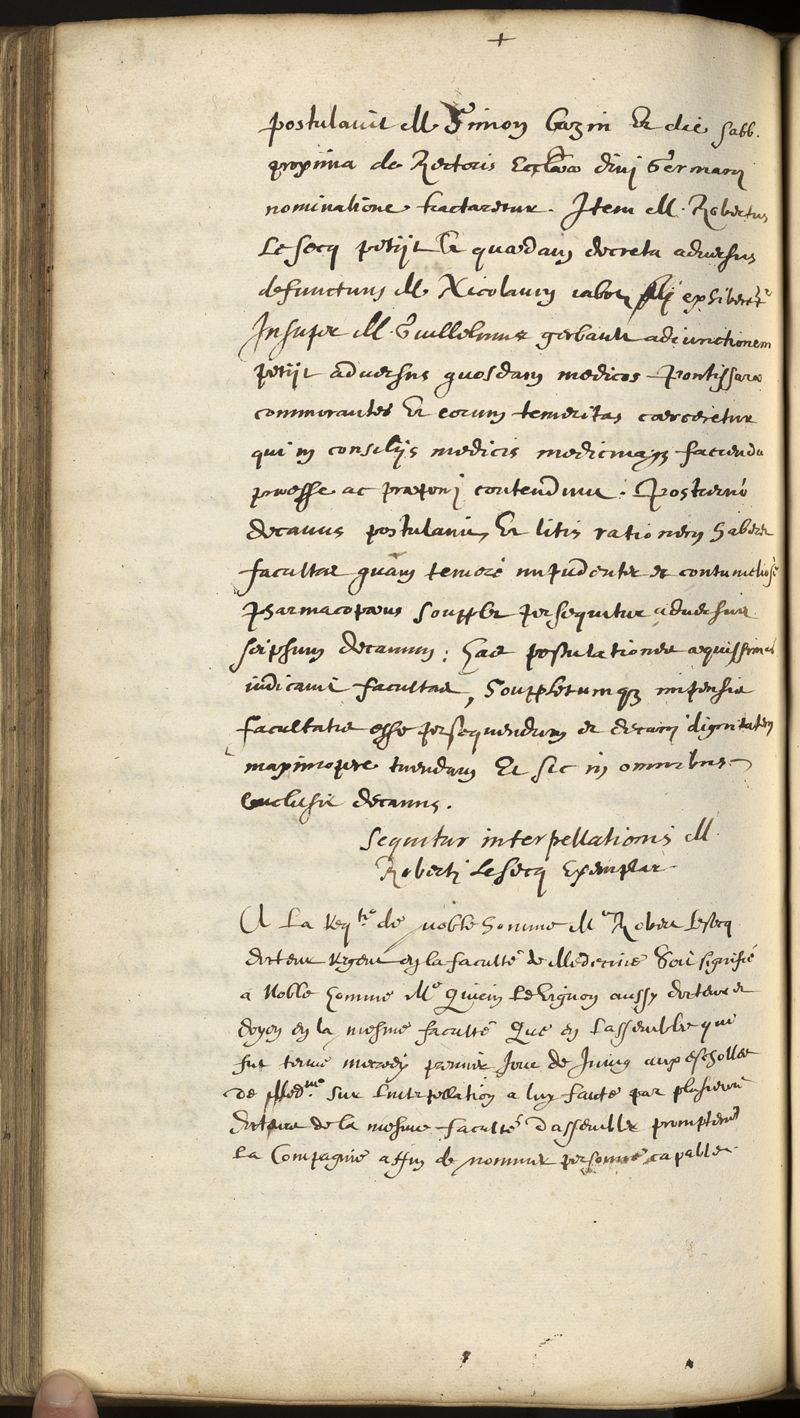 +
postulavit M Simon Bazin Ut die sabb.
proxima de Rectoris Ecclesiae divi Germani
nominatione tractaretur. Item M. Robertus
Le secq petijt Ut quaedam decreta adversus
defunctum M Nicolaum iabot exhiberet
Insuper M. Guillelmus gerbault adiunctionem
petijt adversus quosdam medicos Pontissarae
commorantes Ut eorum temeritas coerceretur
qui in consilijs medicis medicinam faciendi
praeesse ac praeponi contendunt. Postremo
decanus postulavit, Ut litis rationem haberet
facultas quam temere impudenter et contumeliose
pharmacopaeus Soupplet persequitur adversus
seipsum decanum: has postulationes aequissimas
iudicavit facultas, Souppletumq3 impensis
facultatis esse persequendum et decani dignitatem
maximopere tuendam Et sic in omnibus
conclusit decanus.
Sequitur interpellationis M.
Roberti Le secq Exemplar
A La Reqte de noble homme Me Robert Lesecq
docteur Regent en la faculté de Medecine Soit signifié
a Noble homme Me Quirin Le Vignon aussy docteur et
doyen en la mesme faculté Que en Lassemblee qui
fut tenue mecredy premier Jour de Juing aux escholles
de Medne sur Linterpellation a luy faite par plusieurs
docteurs de la mesme faculté dassembler promptemt
La Compagnie affin de nommer personne capable